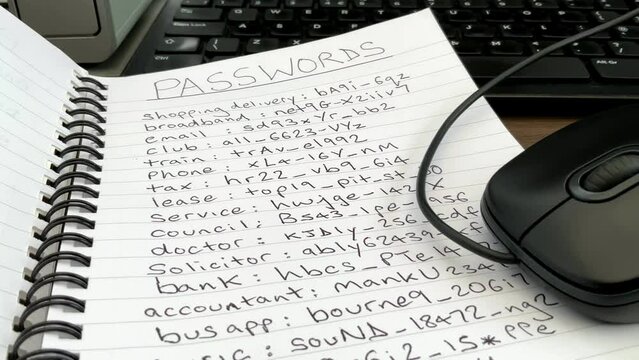 PASSWORDS
shopping delivery: bA9i-6q2
broadband: net9G-X2iiv7
email: sd93xYr_bb2
club: all_6623-VYz
train: trAv_el992
Phone: xL4-16Y_nM
tax: hr22_vb9_6i4
lease: top19_pit-st
service: hwyge-142
council: BS43_ pe
doctor: KJDly_256
Solicitor: ably62439
bank: hbcs_PTe14
accountant: mankU234
bus app: bourne9_20Gi7
souND_18472_na2
6i2_15*PPg